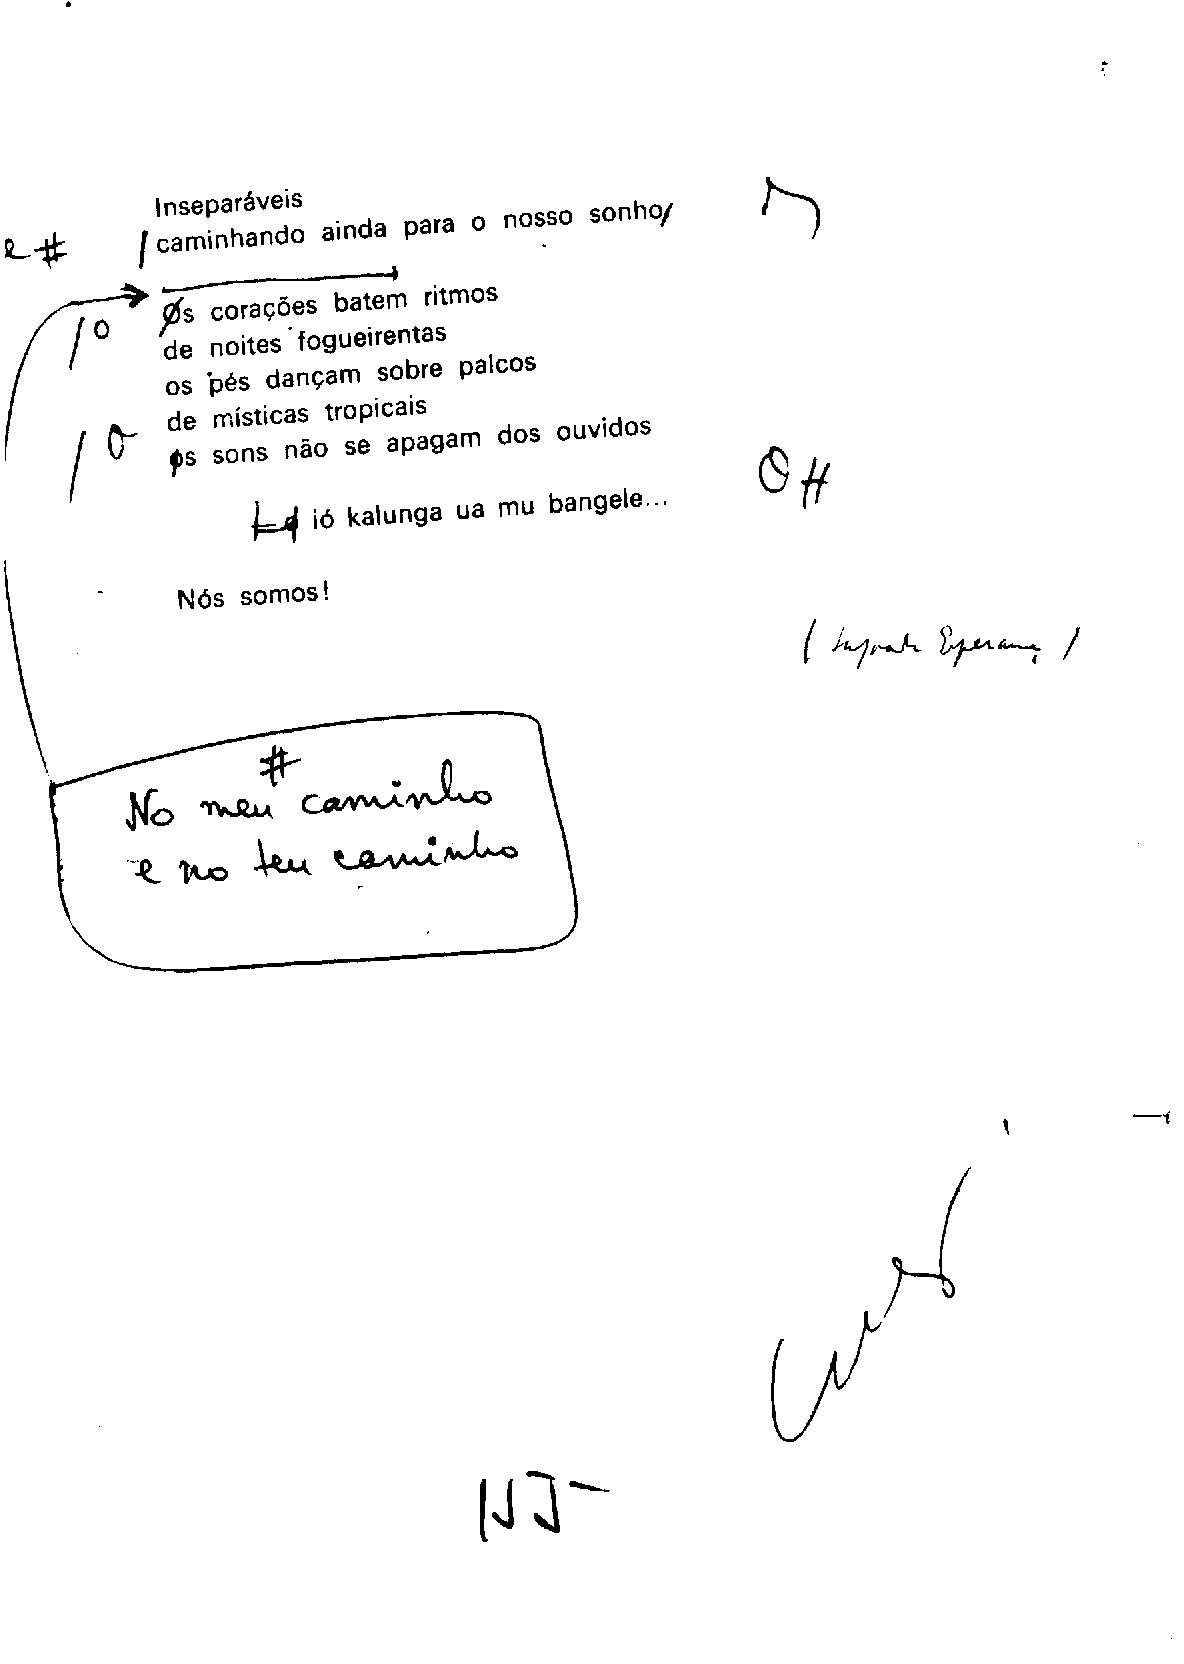 Inseparáveis
e # / caminhando ainda para o nosso sonho/
Os corações batem ritmos
/o
de noites fogueirentas
os pés dançam sobre palcos
de místicas tropicais
/o os sons não se apagam dos ouvidos
ió kalunga ua mu bangele...
Nós somos!
( Sagrada Esperança )
#
No meu caminho
e no teu caminho